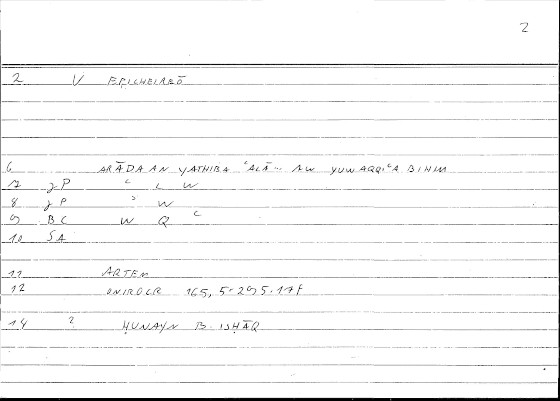 2
2 V EPICHEIREŌ
6 ARĀDA AN YATHIBA ʿALĀ... AW YUWAQQIʿA BIHIM
7 gP ʿ L W
8 gP ʾ W
9 BC W Q ʿ
10 SA
11 ARTEM
12 ONIROCR 165, 5-295.17f
14 ? ḤUNAYN B. ISḤĀQ